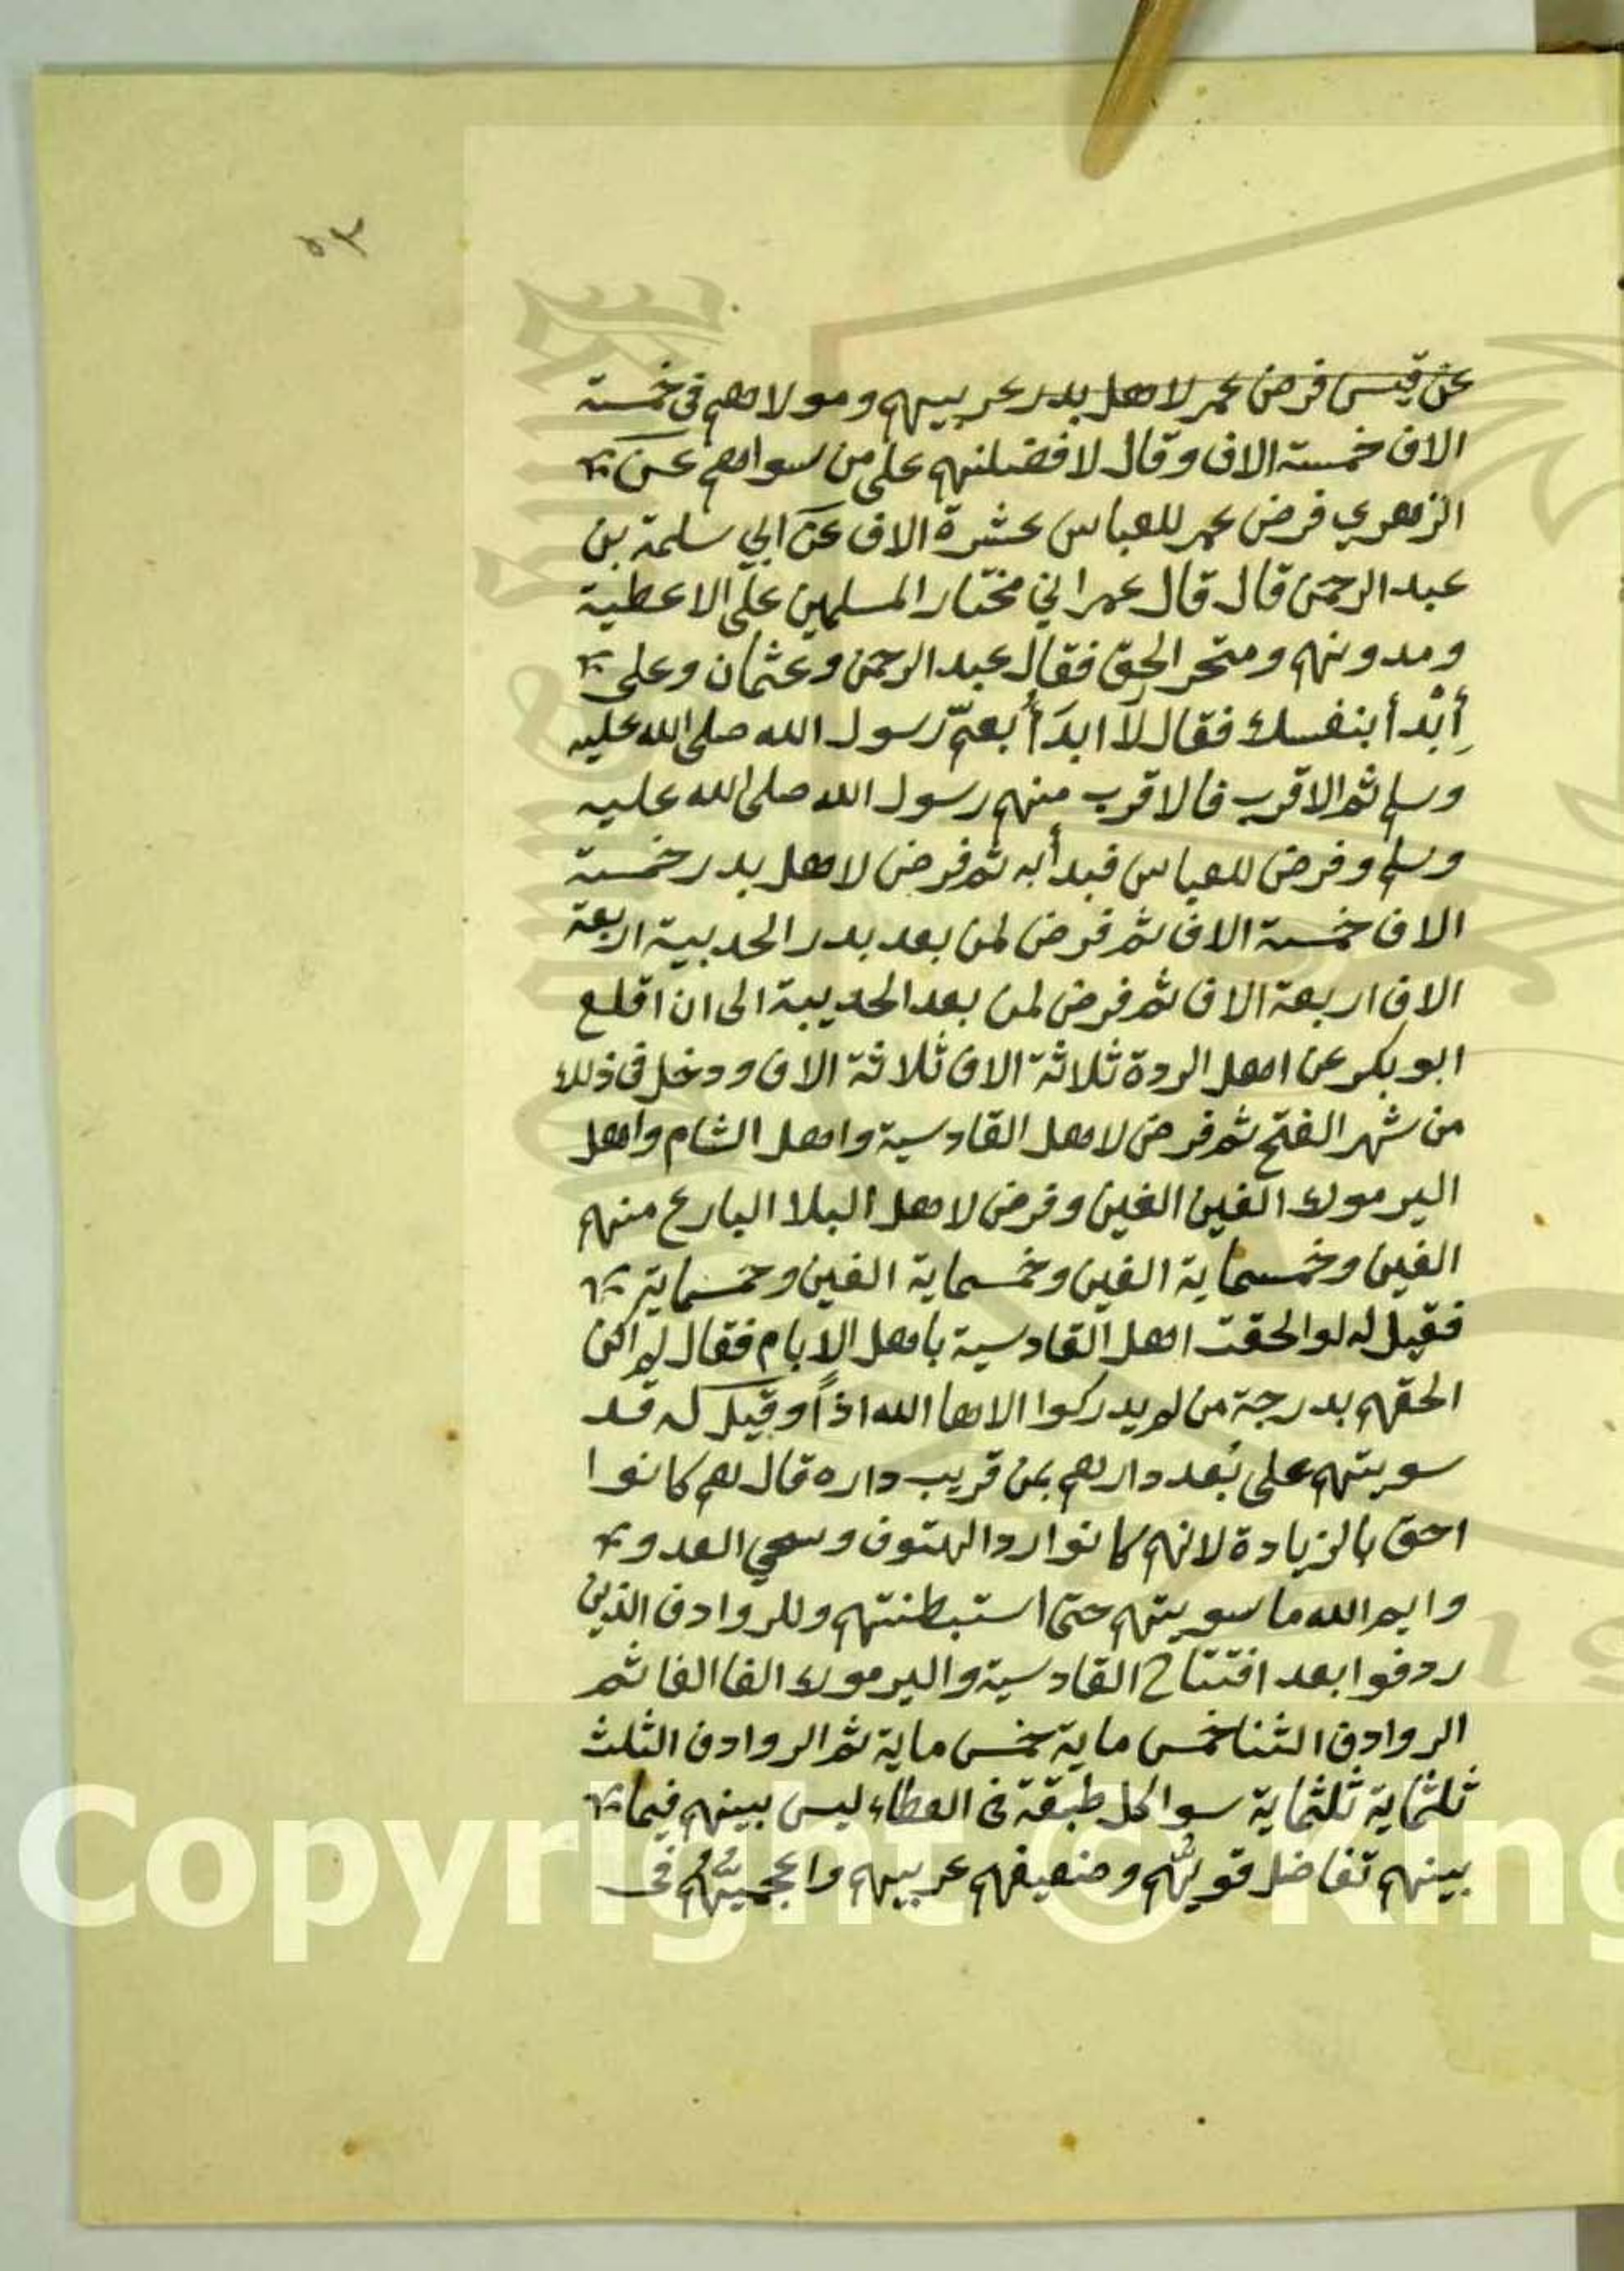 ٥٣
عن قيس فرض عمر لاهل بدر عربيهم ومولاهم في خمسة
الاف خمسة الاف وقال لافضلنهم على من سواهم عن
الزهري فرض عمر للعباس عشرة الاف عن ابي سلمة بن
عبد الرحمن قال قال عمر اني مختار المسلمين على الاعطية
ومدونهم ومتحر الحق فقال عبد الرحمن وعثمان وعلي
إِبْدأ بنفسك فقال لا ابدَأُ بعمّ رسول الله صلى الله عليه
وسلم ثم الاقرب فالاقرب منهم رسول الله صلى الله عليه
وسلم وفرض للعباس فبدأ به ثم فرض لاهل بدر خمسة
الاف خمسة الاف ثم فرض لمن بعد بدر الحديبية اربعة
الاف اربعة الاف ثم فرض لمن بعد الحديبية الى ان اقلع
ابو بكر عن اهل الردة ثلاثة الاف ثلاثة الاف ودخل في ذلك
من شهر الفتح ثم فرض لاهل القادسية واهل الشام واهل
اليرموك الفين الفين وفرض لاهل البلا البارع منهم
الفين وخمسماية الفين وخمسماية الفين وخمسماية
فقيل له لو الحقت اهل القادسية باهل الايام فقال لم اكن
الحقهم بدرجة من لم يدركوا الاها الله اذاً وقيل له قد
سويتهم على بُعد دارهم بمن قريب داره قال هم كانوا
احق بالزيادة لانهم كانوا ردا الهتوف وسعي العدو
وايم الله ما سويتهم حتى استبطنتهم وللروادف الذين
ردفوا بعد افتتاح القادسية واليرموك الفا الفا ثم
الروادف الثنا خمس ماية خمس ماية ثم الروادف الثلث
ثلثماية ثلثماية سوا كل طبقة في العطاء ليس بينهم فيما
بينهم تفاضل قويُّهم وضعيفهم عربيهم واعجميُّهُم في
Copyright © King